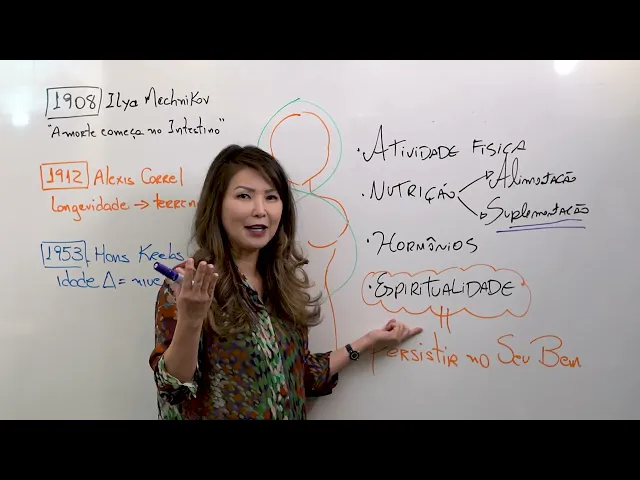 1908 Ilya Mechnikov
"A morte começa no Intestino"
1912 Alexis Correl
Longevidade → terren
1953 Hans Keebs
idade Δ = nive
• Atividade Fisiça
• Nutrição → Alimentação
→ Suplementação
• Hormônios
• Espiritualidade
Persistir no Seu Bem